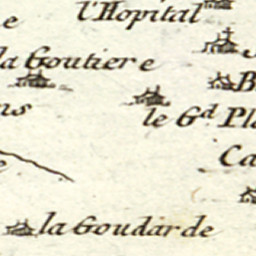 l'Hopital
la Goutiere
le Gd Pla
Ca
la Goudarde